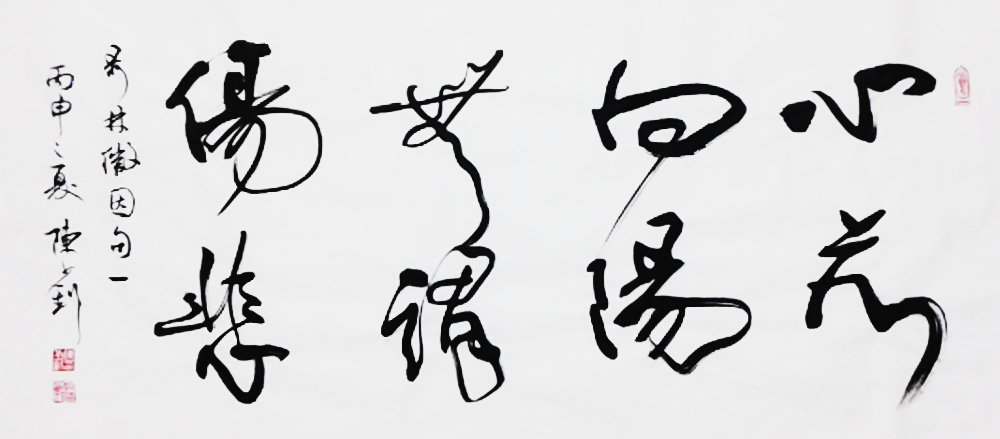 心若
向陽
無謂
傷悲
录林徽因句一
丙申之夏 陳